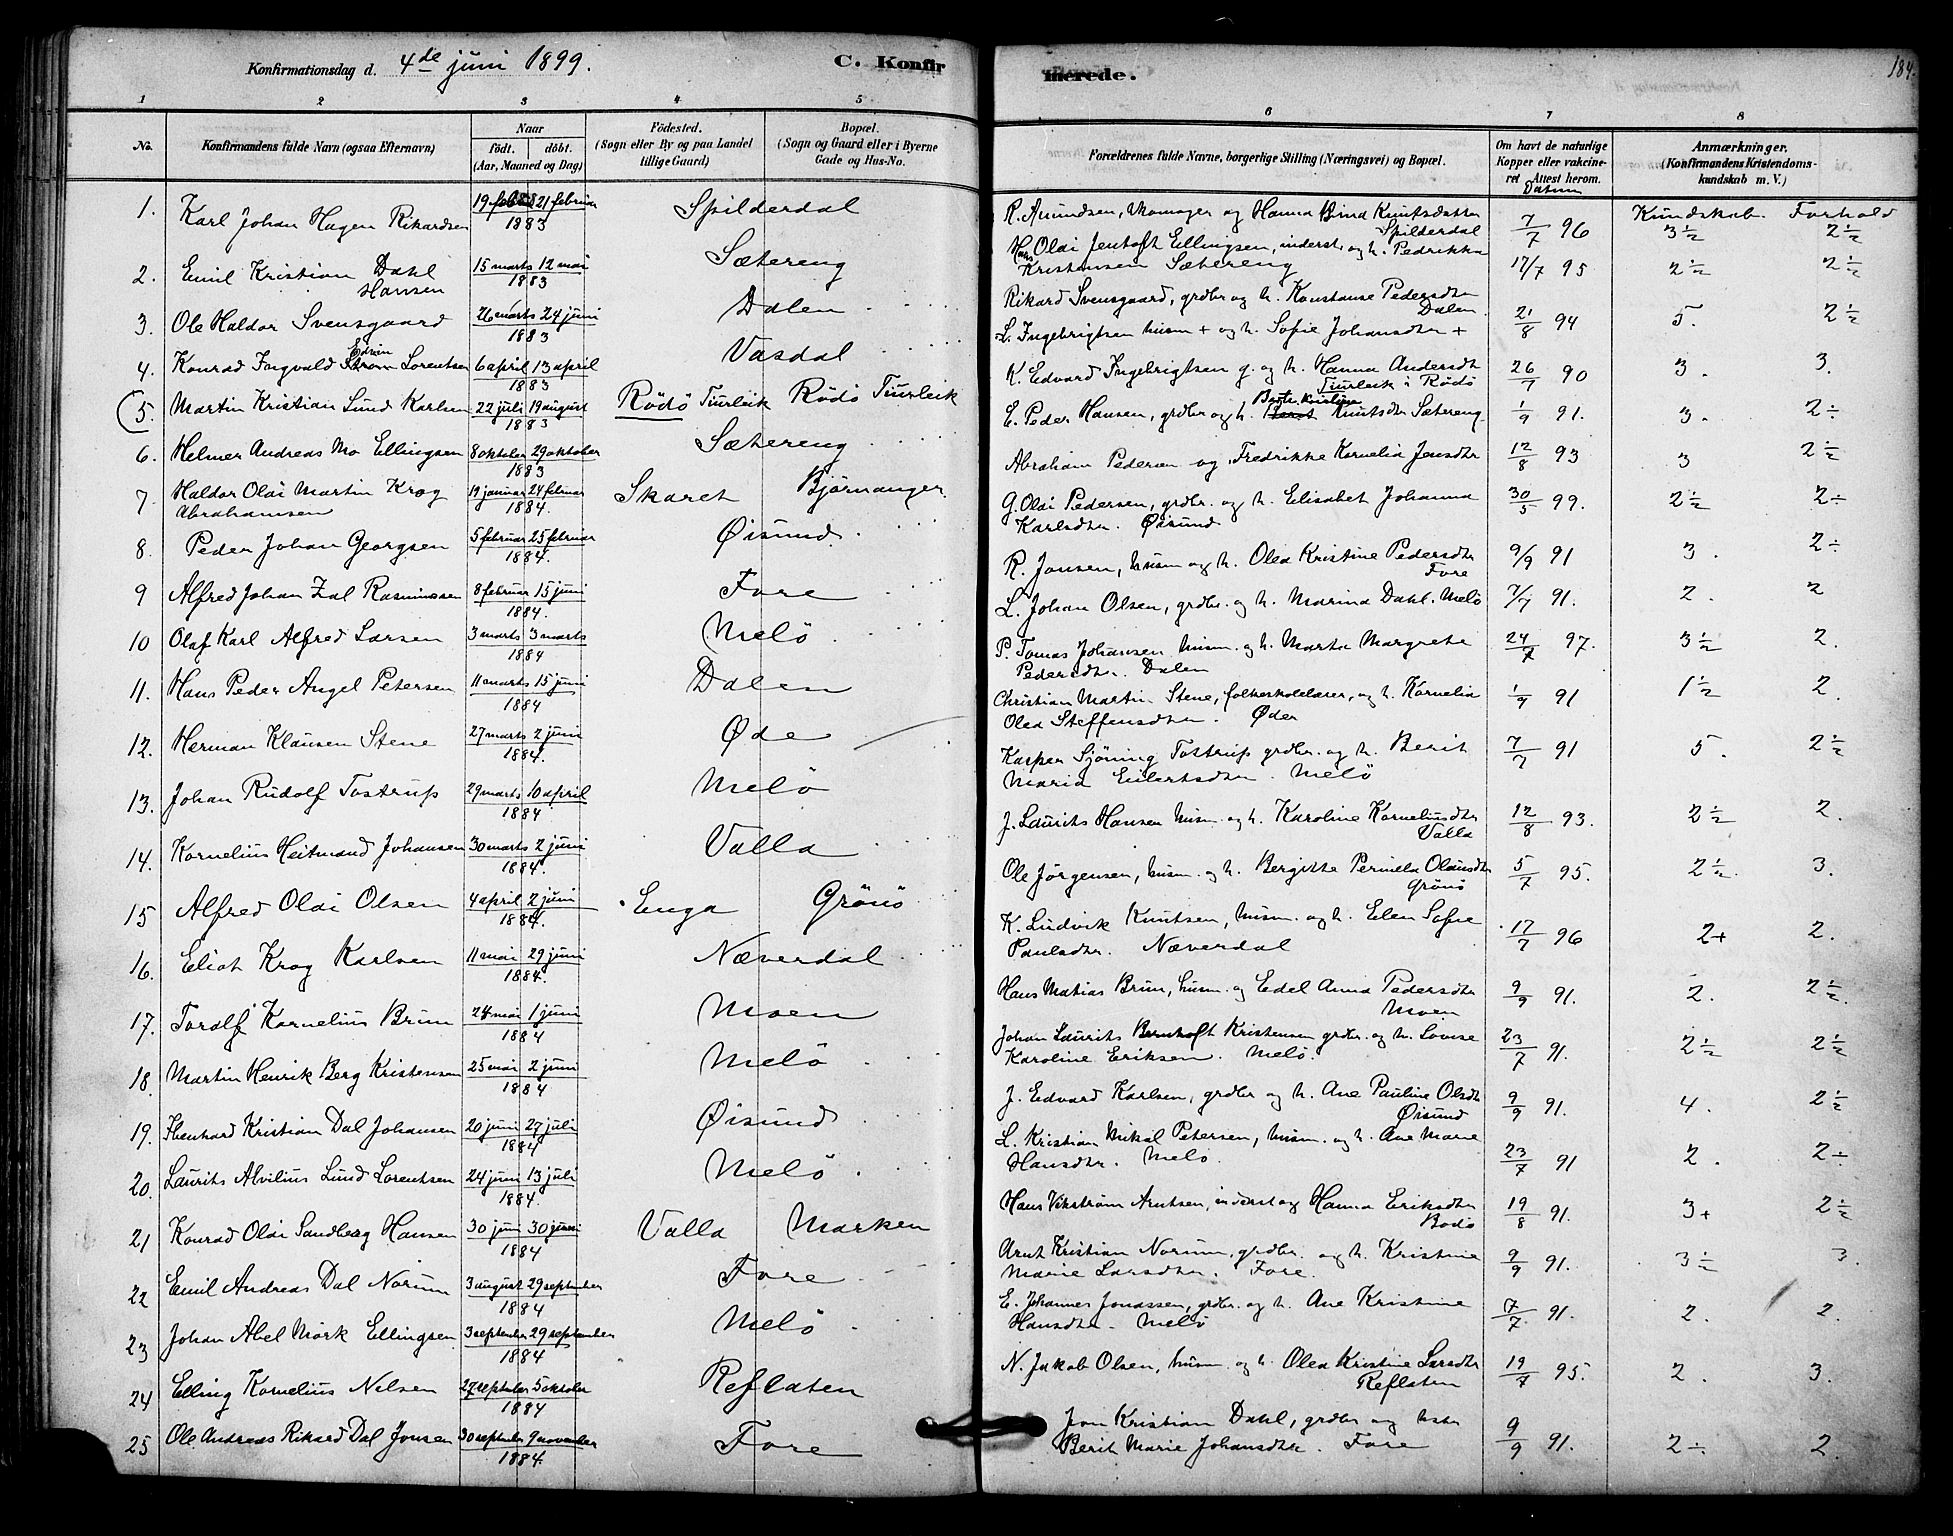 Konfirmationsdag d. 4de juni 1899.
C. Konfirmerede.
184.
1 2 3 4 5 6 7 8
No.
Konfirmandens fulde Navn (ogsaa Efternavn)
Naar
födt. döbt.
(Aar, Maaned og Dag)
Födested.
(Sogn eller By og paa Landet
tillige Gaard)
Bopæl.
(Sogn og Gaard eller i Byerne
Gade og Hus-No.
Forældrenes fulde Navne, borgerlige Stilling (Næringsvei) og Bopæl.
Om havt de naturlige
Kopper eller vakcine-
ret. Attest herom.
Datum
Anmærkninger.
(Konfirmandens Kristendoms-
kundskab m. V.)
Kundskab. Forhold
1. Karl Johan Hagen Rikardsen 19 februar 21 februar 1883 Spilderdal
R. Amundsen, og Hanna Knutsdatter Spilderdal 7/7 96 3½ 2½
2. Emil Kristian Dahl Hansen 15 marts 12 mai 1883 Sætereng
Hans Olai Jentoft Ellingsen, inderst, og h. Pedrikke
Kristensen Sætereng 17/7 95 2½ 2½
3. Ole Haldor Svensgaard 26 marts 24 juni 1883 Dalen
Rikard Svensgaard, grdbr og h. Konstanse Pedersdtr Dalen 21/8 94 5. 2½
4. Konrad Ingvald Edvin Lorentsen 6 april 13 april 1883 Vasdal
L. Ingebrigtsen husm + og h. Sofie Johansdtr +
3. 3.
5. Martin Kristian Lund Karlsen 22 juli 19 august 1883 Rödö Tiurleik Rödö Tiurleik
K. Edvard Ingebrigtsen g. og h. Hanna Andersdtr
Tiurleik i Rödö 26/7 90 3. 2÷
6. Helmer Andreas Mo Ellingsen 8 oktober 29 oktober 1883 Sætereng
E. Peder Hansen, grdbr og h. Kristine Knutsdtr Sætereng 1/9 91. 3 2½
7. Haldor Olai Martin Krog
Abrahamsen 19 januar 24 februar 1884. Skaret Björnanger
Abraham Pedersen og Fredrikke Kornelia Jensdtr 12/8 93 2½ 2÷
8. Peder Johan Georgsen 5 februar 25 februar 1884. Øisund
G. Olai Pedersen, grdbr. og h. Elisabet Johanna
Karlsdtr. Øisund 30/5 99. 3. 2÷
9 Alfred Johan Zal Rasmussen 8 februar 15 juni 1884. Fore
R. Jonsen, husm og h. Olea Kristine Pedersdtr
Fore 9/9 91 2. 2
10 Olaf Karl Alfred Larsen 3 marts 3 marts 1884 Melö
L. Johan Olsen, grdbr. og h. Marina Dahl. Melö 7/7 91. 3½ 2.
11. Hans Peder Angel Petersen 11 marts 15 juni 1884 Dalen
P. Tomas Johansen husm. og h. Marta Margrete
Pedersdtr. Dalen 24/7 97. 1½ 2.
12. Herman Klausen Stene 27 marts 2 juni 1884. Øde
Christian Martin Stene, folkeskolelærer, og h. Kornelia
Olea Steffensdtr. Øder 1/9 91 5. 2½
13. Johan Rudolf Tostrup 29 marts 10 april 1884 Melö
Kasper Sjöning Tostrup grdbr. og h. Berit
Maria Eilertsdtr. Melö 7/7 91 2½ 2.
14. Kornelius Heitmand Johansen 30 marts 2 juni 1884. Valla
J. Laurits Hansen husm. og h. Karoline Korneliusdtr
Valla 12/8 93. 2½. 3.
15 Alfred Olai Olsen 4 april 2 juni 1884. Enga Grönö
Ole Jörgensen, husm. og h. Bergitte Pernella Olausdtr
Grönö 5/7 95. 2+ 2.
16. Eliot Krog Karlsen 11 mai 29 juni 1884. Næverdal
K. Ludvik Knutsen, husm. og h. Elen Sofie
Paulsdtr. Næverdal 17/7 96 2. 2½.
17. Toralf Kornelius Brun 24 mai 1 juni 1884 Moen
Hans Matias Brun, husm. og Edel Anna Pedersdtr
Moen 9/9 91. 2½ 2½
18. Martin Henrik Berg Kristensen 25 mai 2 juni 1884 Melö
Johan Laurits Bernhoft Kristensen grdbr. og h. Lovise
Karoline Eriksen. Melö. 23/7 91.
19. Ebenhard Kristian Dal Johansen 20 juni 27 juli 1884 Øisund
J. Edvard Karlsen, grdbr og h. Ane Pauline Olsdtr
Øisund 9/9 91. 4. 2½
20. Laurits Alvilius Lund Lorentsen 24 juni 13 juli 1884. Melö
L. Kristian Mikal Petersen, husm. og h. Ane Marie
Hansdtr. Melö. 23/7 91 2. 2÷
21 Konrad Olai Sandberg Hansen 30 juni 30 juni 1884. Valla Marken
Hans Vikström Arntsen, inderst og Hanna Eriksdtr
Bodö 19/8 91. 3+ 2½
22 Emil Andreas Dal Norum 3 august 29 september 1884 Fore
Arnt Kristian Norum, grdbr. og h. Kristine
Marie Larsdtr. Fore. 9/9 91. 3½ 3.
23 Johan Abel Mörk Ellingsen 3 september 29 september 1884 Melö
E. Johannes Jonassen, grdbr. og h. Ane Kristine
Hansdtr. Melö 7/7 91. 2. 2.
24 Elling Kornelius Nilsen 27 septeber 5 oktober 1884 Reflaten
N. Jakob Olsen, husm. og h. Olea Kristine Larsdtr
Reflaten 19/7 95. 2. 3.
25 Ole Andreas Rikard Dal Jonsen 30 september 9 november 1884. Fore
Jon Kristian Dahl, grdbr og
Berit Marie Johansdtr. Fore 9/9 91. 2÷ 2